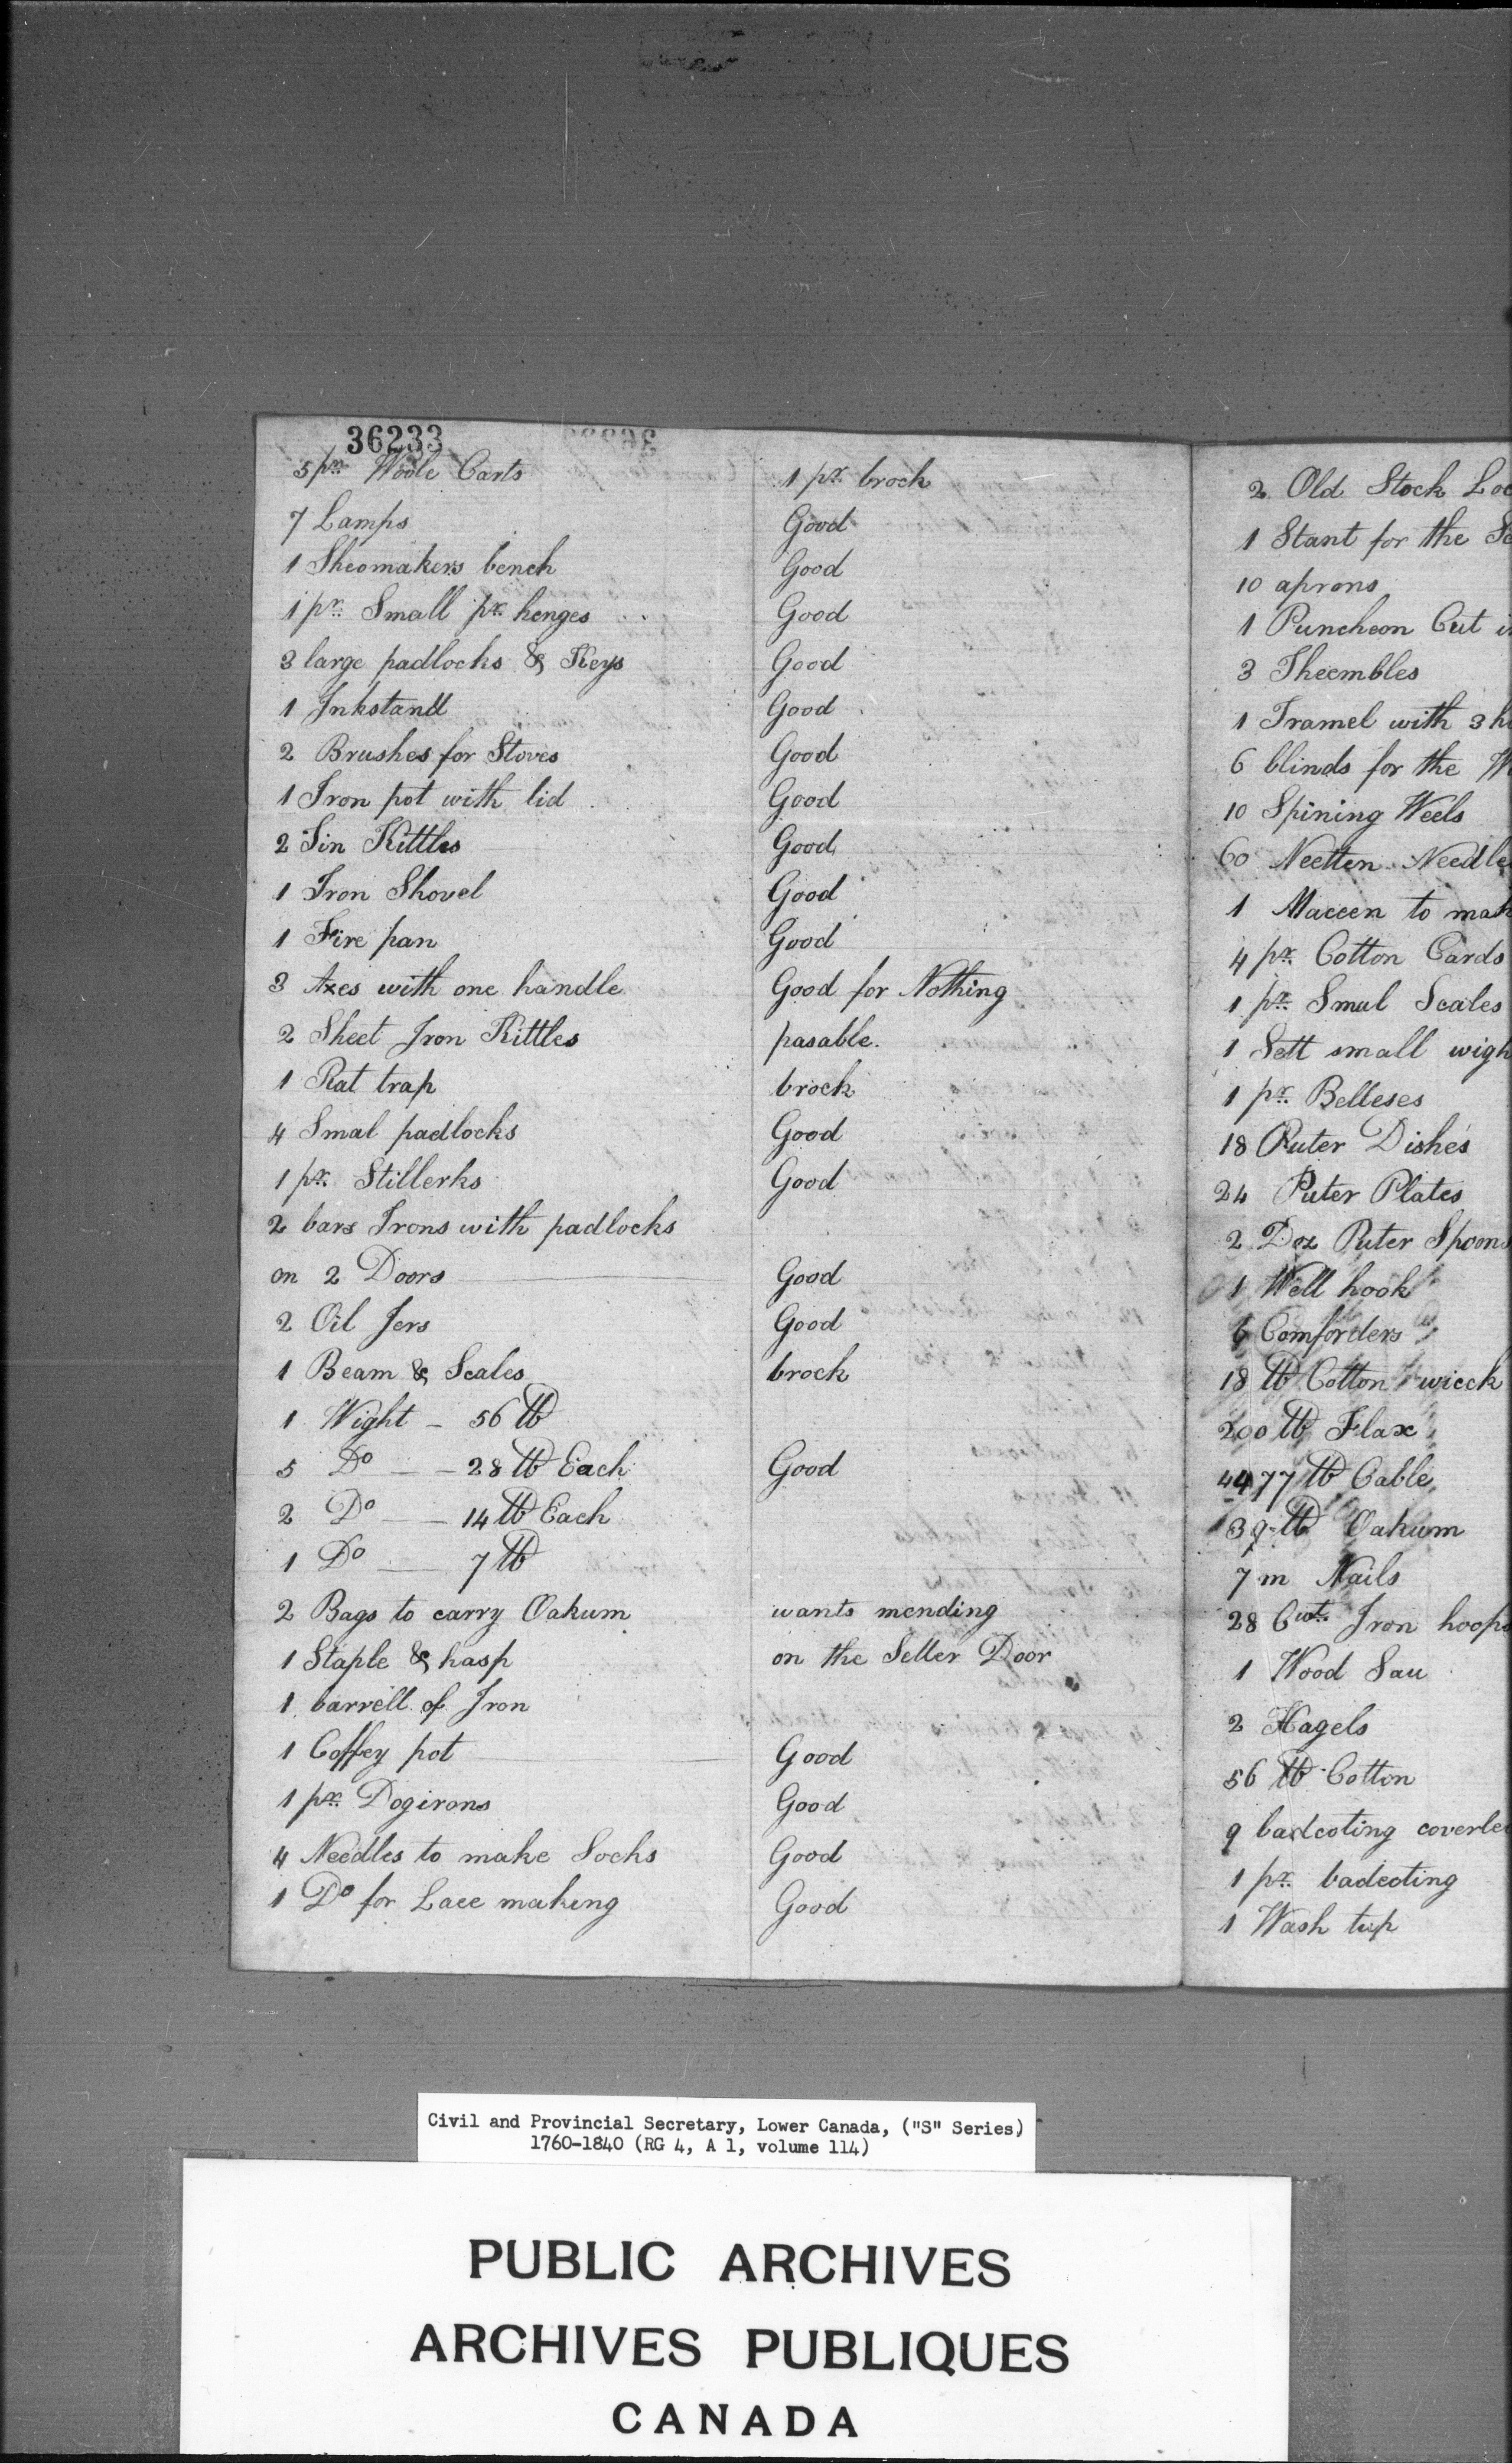 36233
5 pr. Woole Carts 1 pr. brock
7 Lamps Good
1 Sheomakers bench Good
1 pr. Small pr. henges Good
3 large padlocks & Keys Good
1 Inkstand Good
2 Brushes for Stoves Good
1 Iron pot with lid Good
2 Tin Kittles Good
1 Iron Shovel Good
1 Fire pan Good
3 Axes with one handle Good for Nothing
2 Sheet Iron Kittles pasable.
1 Rat trap brock
4 Smal padlocks Good
1 pr. Stillerks Good
2 bars Irons with padlocks
on 2 Doors Good
2 Oil Jers Good
1 Beam & Scales brock
1 Wight - 56 lb
5 Do - - 28 lb Each Good
2 Do - 14 lb Each
1 Do - 7 lb
2 Bags to carry Oakum wants mending
1 Staple & hasp on the Seller Door
1 barrell of Iron
1 Coffey pot Good
1 pr. Dogirons Good
4 Needles to make Socks Good
1 Do for Lace making Good
2 Old Stock Loc
1 Stant for the
10 aprons
1 Puncheon Cut
3 Theembles
1 Tramel with 3 h
6 blinds for the W
10 Spining Weels
60 Neetten Needle
1 Maceen to mak
4 pr. Cotton Cards
1 pr. Smal Scales
1 Sett small wigh
1 pr. Belleses
18 Puter Dishes
24 Puter Plates
2 Doz Puter Spoons
1 Well hook
6 Comforders
18 lb Cotton wieck
200 lb Flax
4477 lb Cable
39 lb Oakum
7 m Nails
28 Cwt. Iron hoops
1 Wood Sau
2 Hagels
56 lb Cotton
9 badcoting coverle
1 pr. badcoting
1 Wash tup
Civil and Provincial Secretary, Lower Canada, ("S" Series)
1760-1840 (RG 4, A 1, volume 114)
PUBLIC ARCHIVES
ARCHIVES PUBLIQUES
CANADA